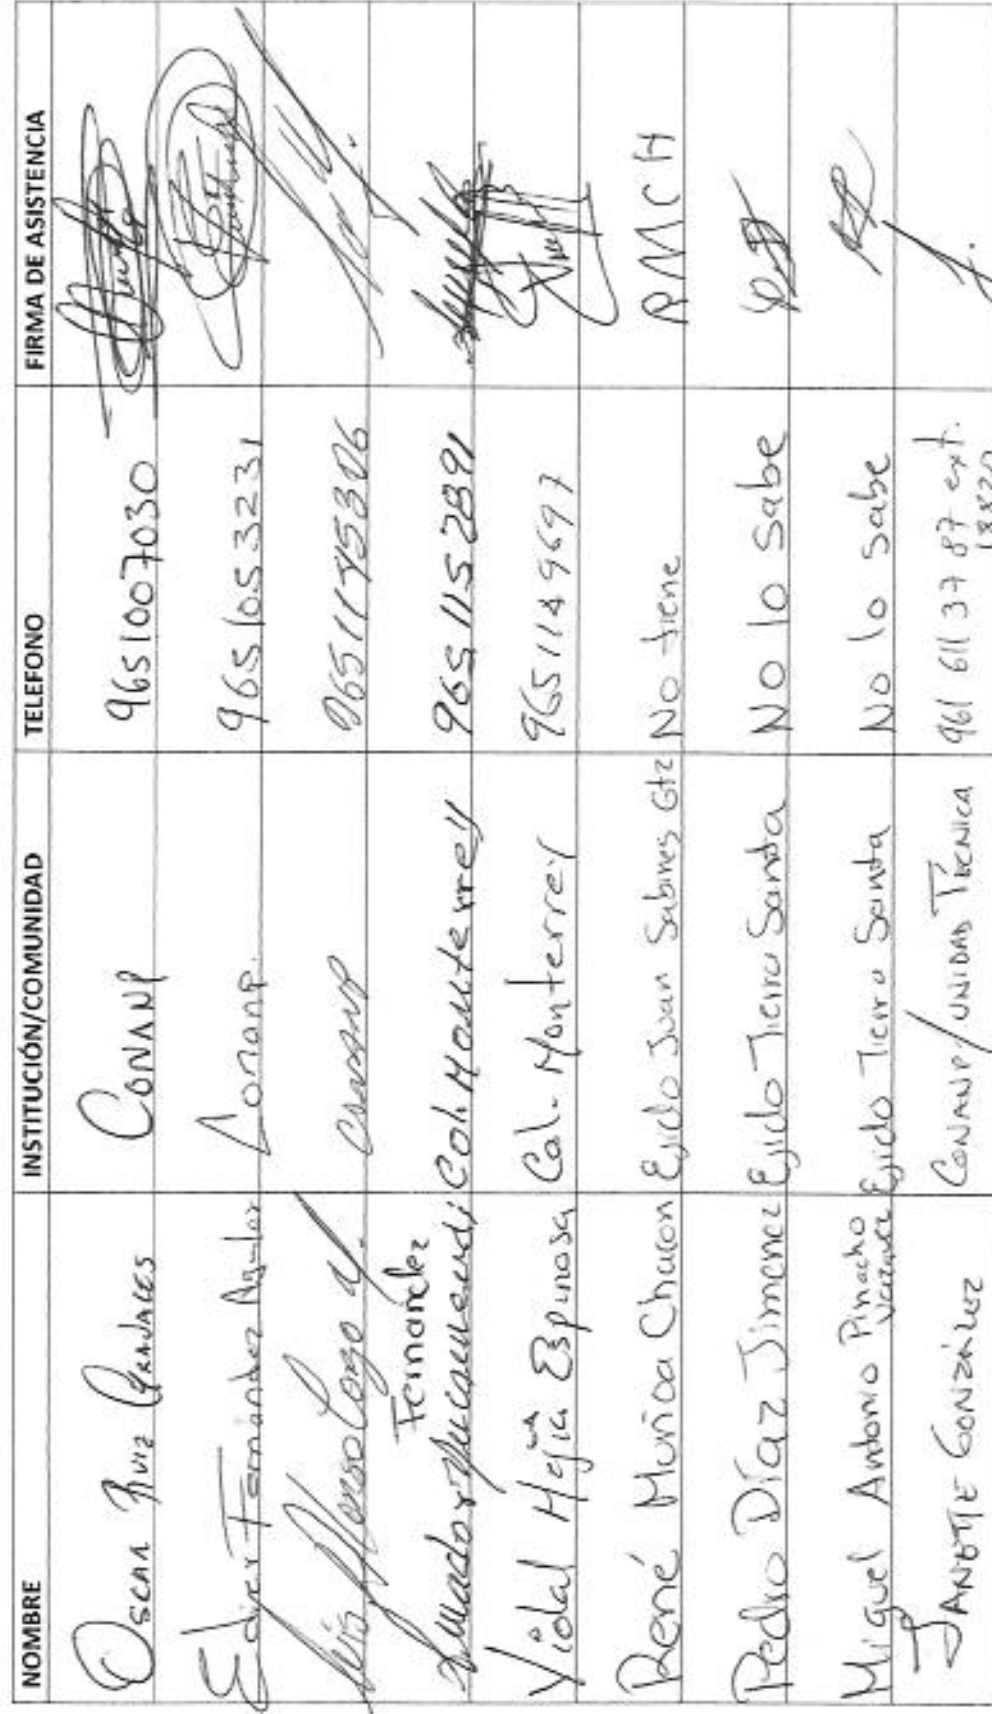 NOMBRE INSTITUCIÓN/COMUNIDAD TELEFONO FIRMA DE ASISTENCIA
Oscar Ruiz Grajales CONANP 9651007030
Edier Fernandez Aguilar Conanp. 9651053231
Luis Alfonso Conanp
Fernandez
Amador Col. Monterrey 965 115 2891
Vidal Mejia Espinosa Col. Monterrey 9651149697
René Munoa Chacon Ejido Juan Sabines Gtz No tiene RMCH
Pedro Díaz Jimenez Ejido Tierra Santa No lo sabe
Miguel Antonio Pinacho Ejido Tierra Santa No lo sabe
Vazquez
JANETTE GONZÁLEZ CONANP/UNIDAD TÉCNICA 961 611 37 87 ext.